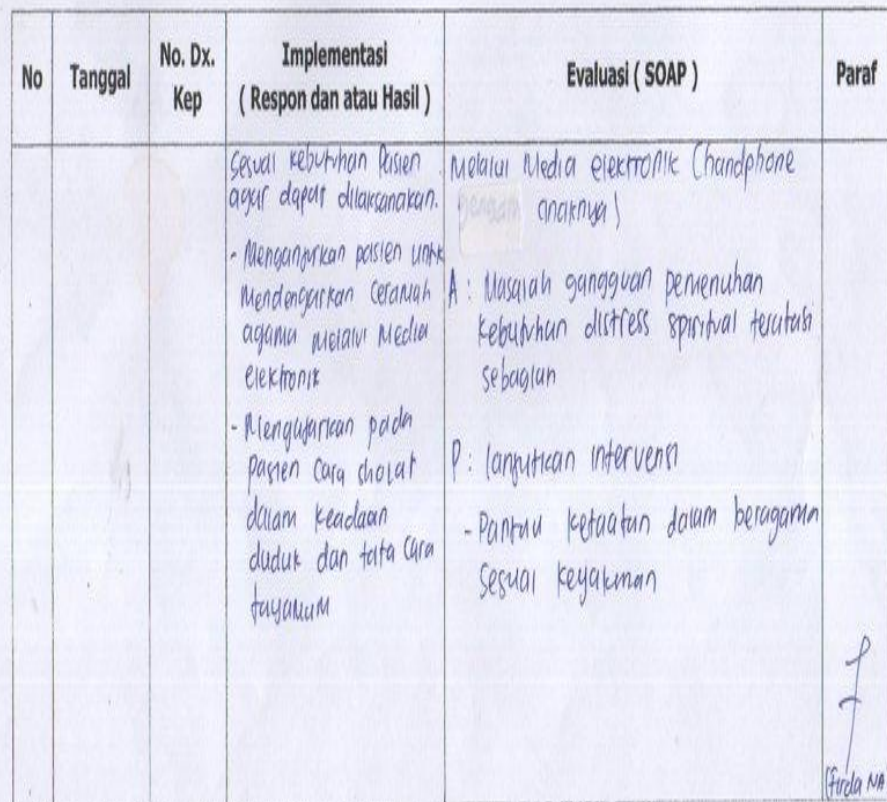 No
Tanggal
No. Dx.
Kep
Implementasi
( Respon dan atau Hasil )
Evaluasi ( SOAP )
Paraf
Sesuai kebutuhan Pasien
agar dapat dilaksanakan.
- Menganjurkan pasien untuk
Mendengarkan Ceramah
agama Melalui Media
elektronik
- Mengajarkan pada
pasien Cara sholat
dalam keadaan
duduk dan tata Cara
tayamum
Melalui Media elektronik (handphone
anaknya)
A : Masalah gangguan pemenuhan
kebutuhan distress spiritual teratasi
sebagian
P : lanjutkan intervensi
- Pantau ketaatan dalam beragama
sesuai keyakinan